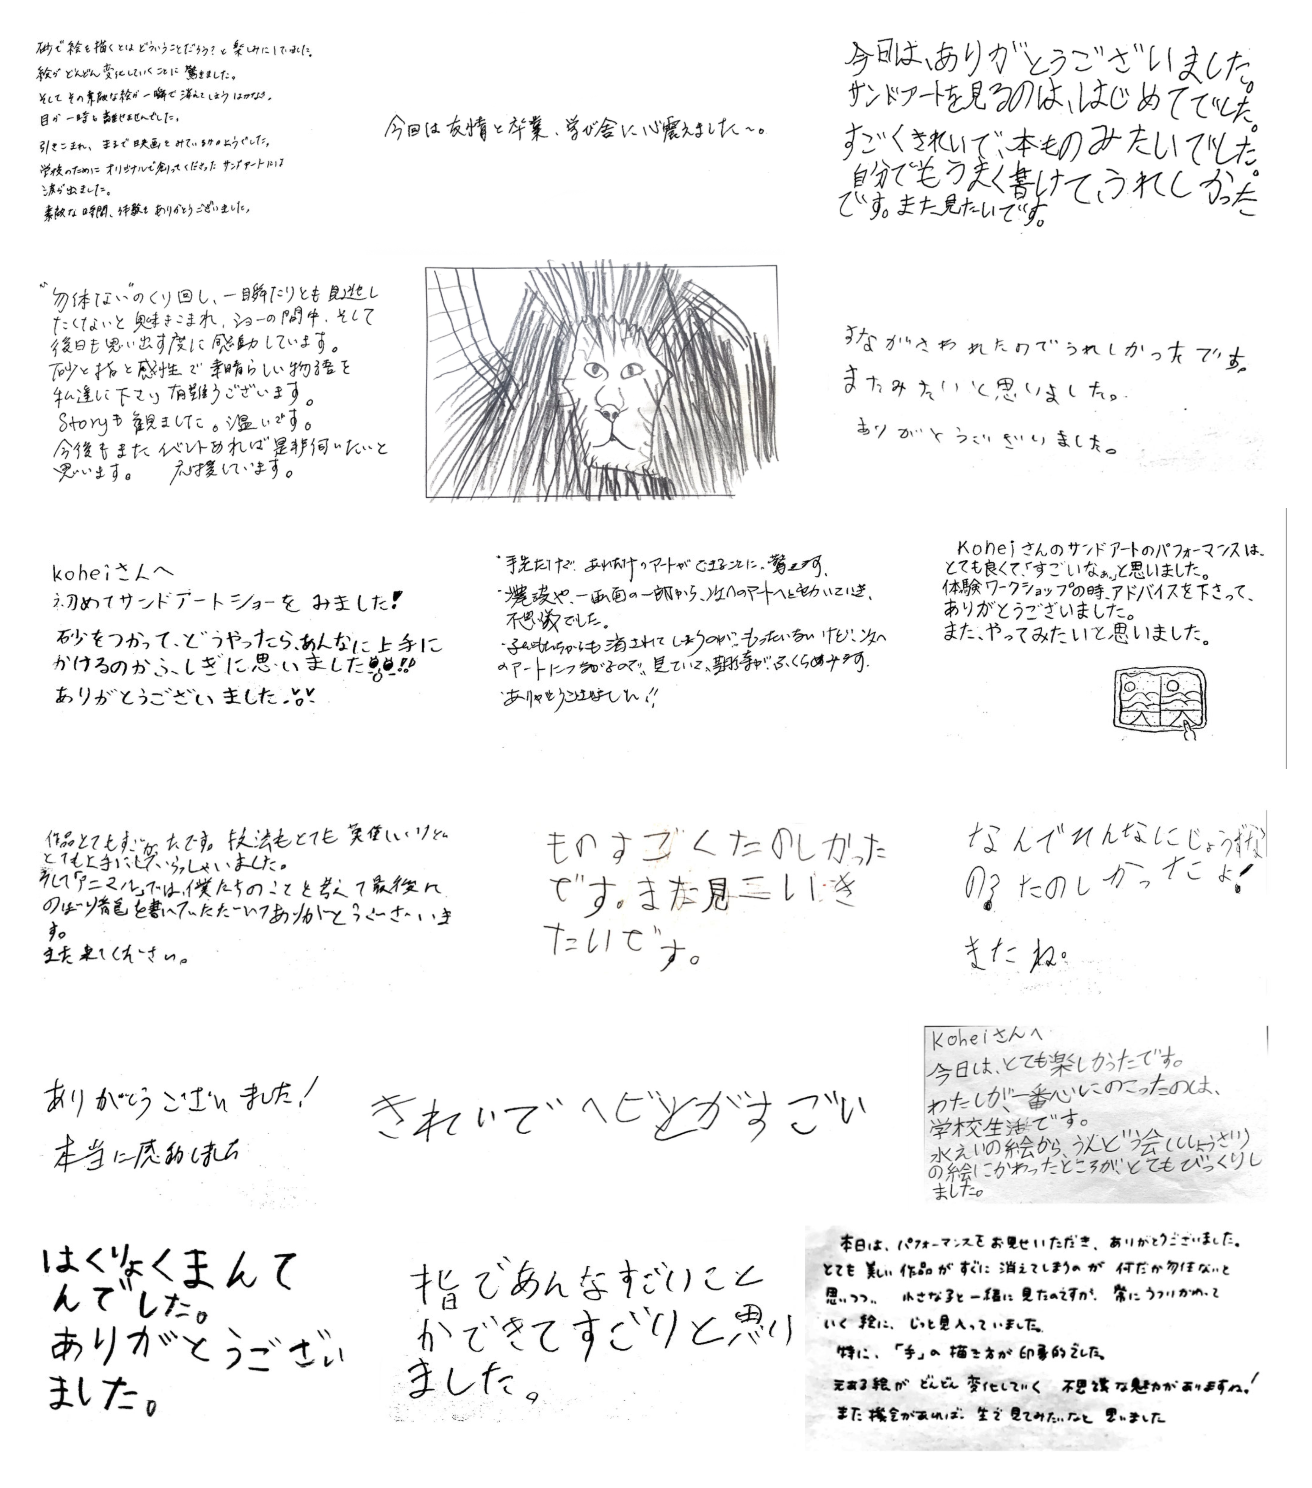 砂で絵を描くとはどういうことだろう?と楽しみにしていました。
絵がどんどん変化していくことに驚きました。
そしてその素敵な絵が一瞬で消えてしまうはかなさ。
目が一時も離せませんでした。
引きこまれ、まるで映画をみているかのようでした。
学校のためにオリジナルで創ってくださったサンドアートには
涙が出ました。
素敵な時間、体験をありがとうございました。
今回は友情と卒業、学び舎に心震えました〜。
今日は、ありがとうございました。
サンドアートを見るのは、はじめてでした。
すごくきれいで、本ものみたいでした。
自分でもうまく書けて、うれしかった
です。また見たいです。
"勿体ない"のくり回し、一瞬たりとも見逃し
たくないと魅きこまれ、ショーの間中、そして
後日も思い出す度に感動しています。
砂と指と感性で素晴らしい物語を
私達に下さり有難うございます。
Storyも観ました。温いです。
今後もまたイベントあれば是非伺いたいと
思います。 応援しています。
すながさわれたのでうれしかったです。
またみたいと思いました。
ありがとうございました。
koheiさんへ
初めてサンドアートショーをみました!
砂をつかって、どうやったら、あんなに上手に
かけるのか、ふしぎに思いました!!
ありがとうございました
・手先だけで、あれだけのアートができることに、驚きます。
・濃淡や、一画面の一部から、次へのアートへと動いていき、
不思議でした。
もったいないけど、次へ
のアートにつながるので、見ていて、期待がふくらみます。
ありがとうございました!!
Koheiさんのサンドアートのパフォーマンスは、
とても良くて、「すごいなぁ。」と思いました。
体験ワークショップの時、アドバイスを下さって、
ありがとうございました。
また、やってみたいと思いました。
作品とてもすごかったです。技法もとても難しいけど
とても上手にしていらっしゃいました。
そして「アニマル」では、僕たちのことを考えて最後に
のぼり龍を書いていただいてありがとうございま
す。
また来てください。
ものすごくたのしかった
です。また見にいき
たいです。
なんでそんなにじょうずな
の?たのしかったよ!
またね。
ありがとうございました!
本当に感動しました
きれいでヘビとかがすごい
Koheiさんへ
今日は、とても楽しかったです。
わたしが、一番心にのこったのは、
学校生活です。
水えいの絵から、うんどう会(ししょうさい)
の絵にかわったところが、とてもびっくりし
ました。
はくりょくまんて
んでした。
ありがとうござい
ました。
指であんなすごいこと
ができてすごいと思い
ました。
本日は、パフォーマンスをお見せいただき、ありがとうございました。
とても美しい作品がすぐに消えてしまうのが何だか勿体ないと
思いつつ、小さな子と一緒に見たのですが、常にうつりかわって
いく絵に、じっと見入っていました。
特に、「手」の描き方が印象的でした。
元ある絵がどんどん変化していく不思議な魅力がありますね!
また機会があれば、生で見てみたいなと思いました